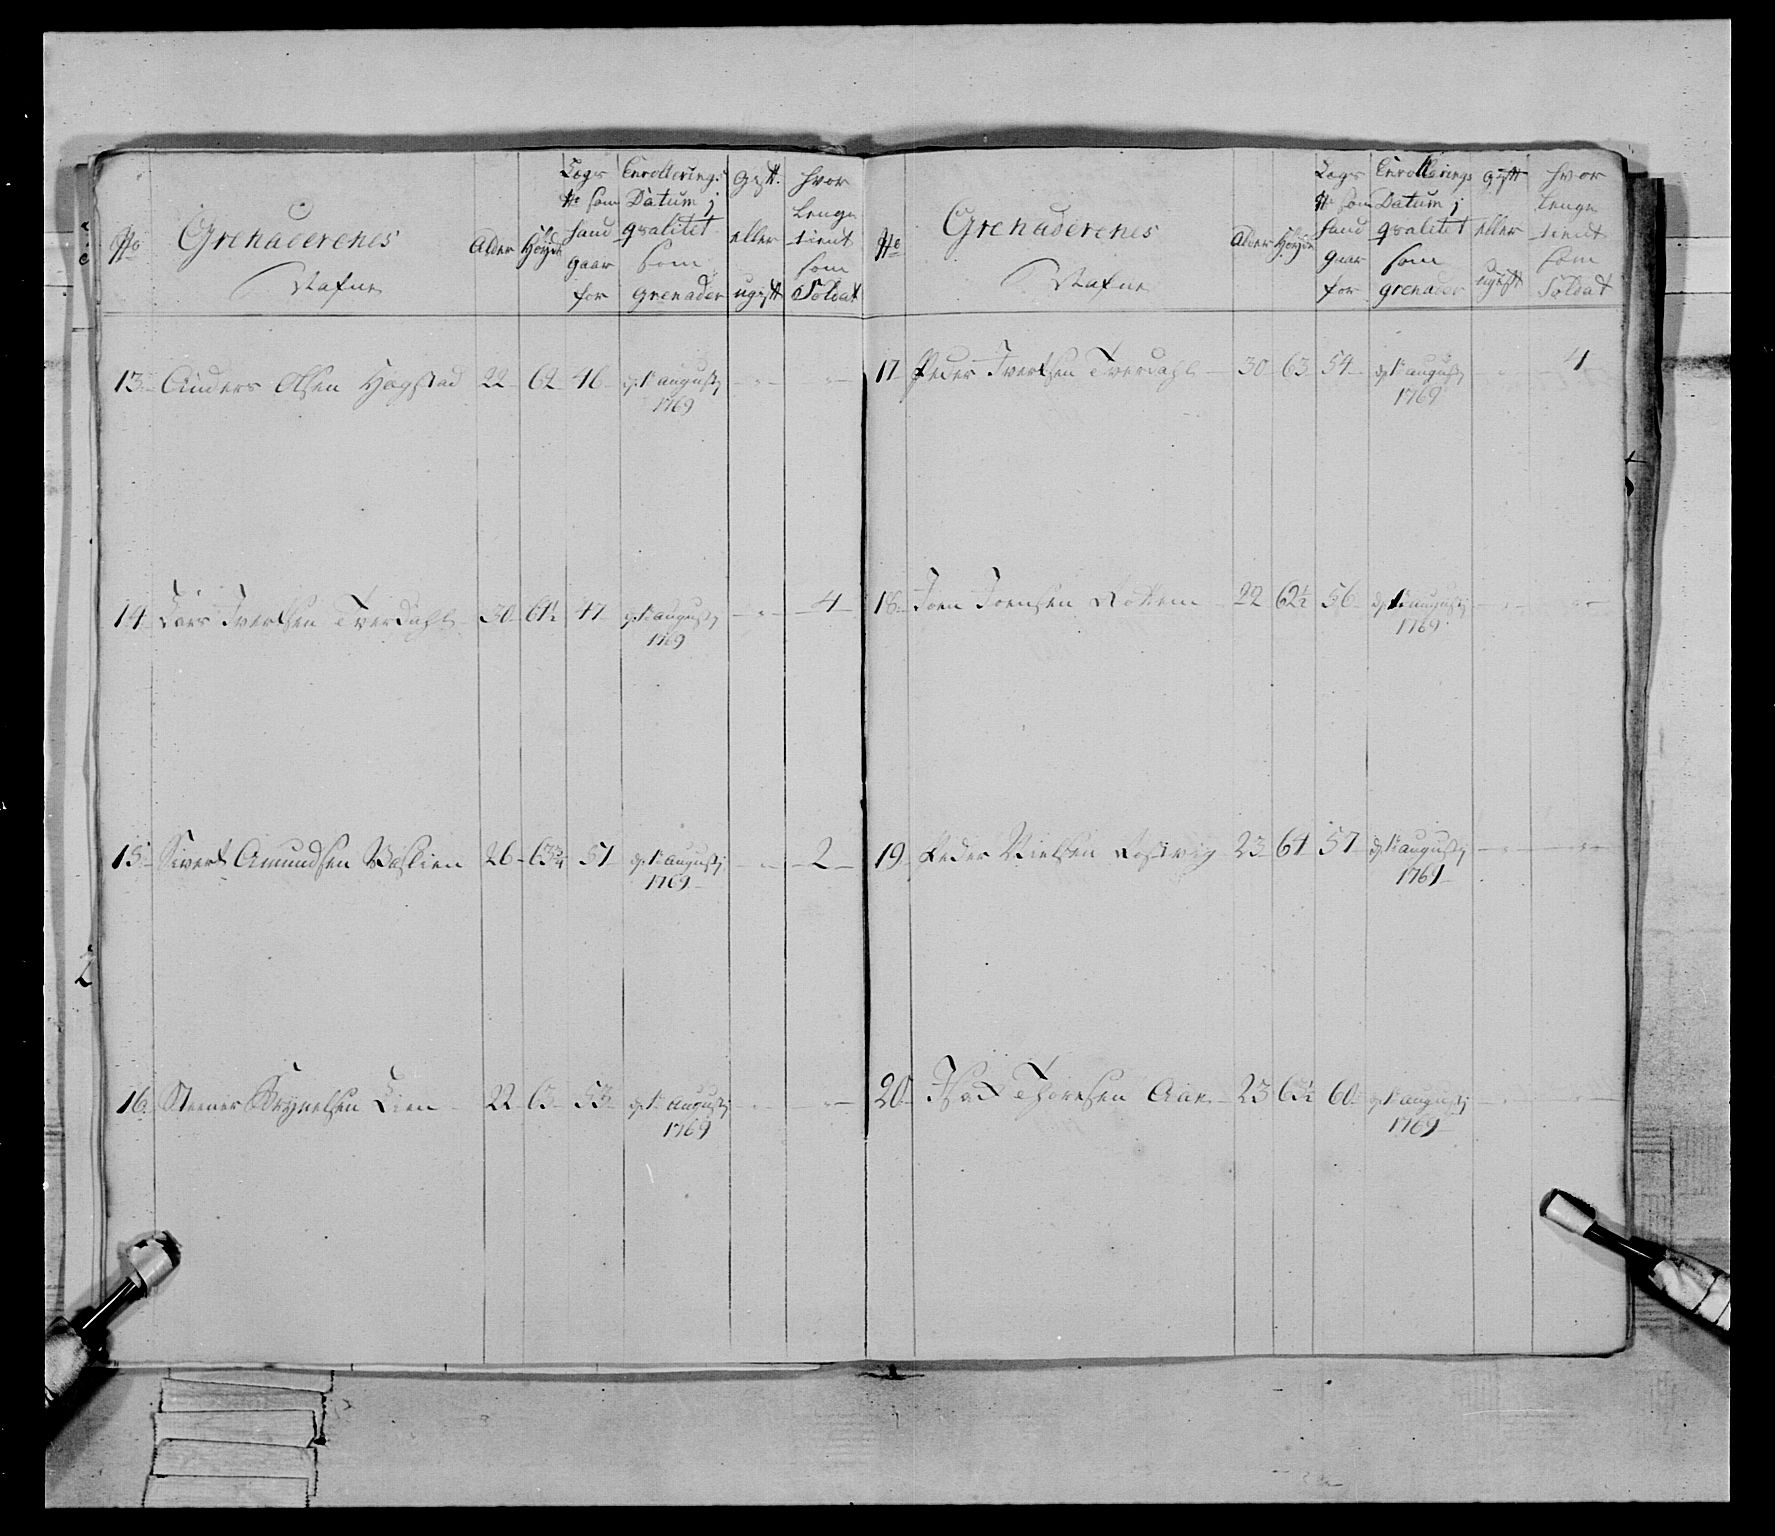 No
Grenaderenes
Nafne
Alder
Høyde
Legs
No som
hand
gaar
for
Enrollerings
Datum j
qvalitet
som
grenader
gift
eller
ugift
hvor
lenge
tient
som
Soldat
13 Anders Olsen Hagstad 22 62 46 d: 1te augustj - " - - " -
1769
14 Lars Ivertsen Tverdahl 30 61½ 47 d: 1te augustj - " - 4
1769
15 Sivert Amundsen 26 63¾ 51 d: 1te augustj - " - 2
1769
16 Steener Brynelsen Lien 22 63 53 d: 1te augustj - " - - " -
1769
No
Grenaderenes
Nafne
Alder
Høyde
Legs
No som
hand
gaar
for
Enrollerings
Datum j
qvalitet
som
grenader
gift
eller
ugift
hvor
lenge
tient
som
Soldat
17 Peder Ivertsen Tverdahl 30 63 54 d: 1te augustj - " - 4
1769
18 Joen Joensen Rottem 22 62½ 56 d: 1te augustj - " - - " -
1769
19 Peder Nielsen 23 64 57 d: 1te augustj - " - - " -
1769
20 Thoresen Aae 23 63½ 60 d: 1te augustj - " - - " -
1769